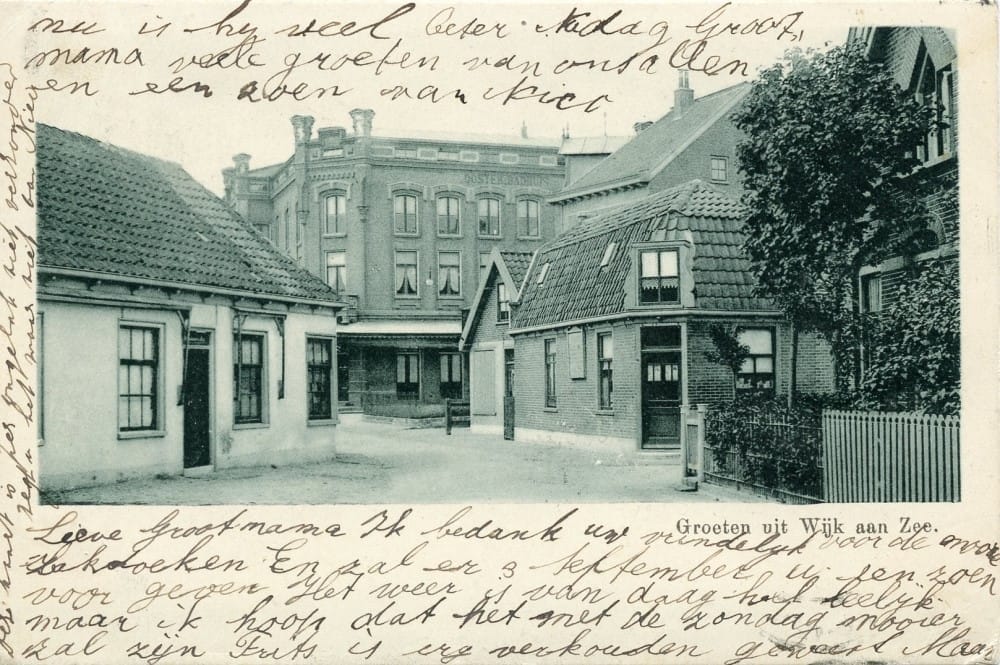 nu is hy veel beter Nedag Groot,
mama veele groeten van ons allen
en een zoen van Nico
OOSTERBADHUIS
Groeten uit Wijk aan Zee.
Lieve Grootmama Ik bedank uw vriendelyk voor de mooie
Zakdoeken En zal er 3 September u een zoen
voor geven Het weer is van daag heel leelyk
maar ik hoop dat het met de zondag mooier
zal zijn Frits is erg verkouden geweest Maar
is per ongeluk niet verkouden
zegt u het maar niet aan